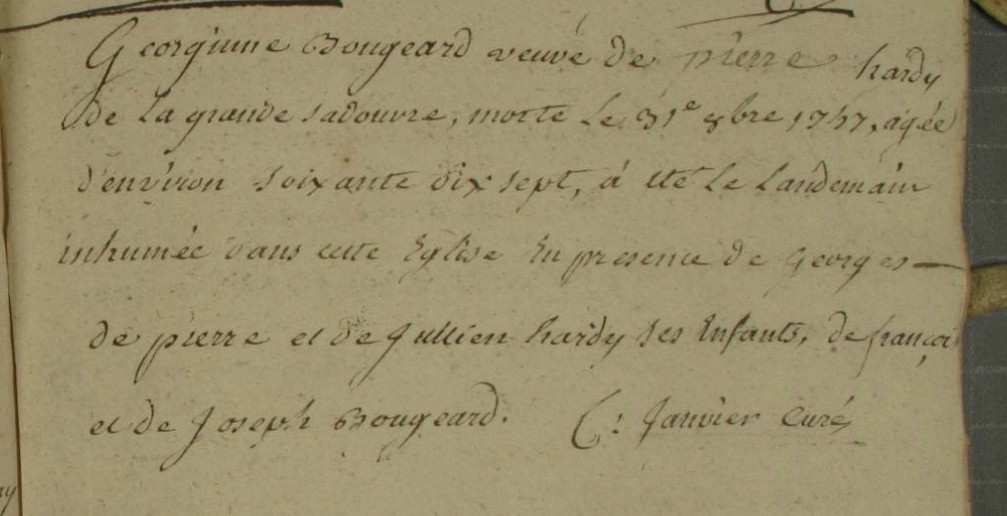 Georginne Bougeard veuve de pierre hardy
de la grande sadouvre, morte le 31e 8bre 1747, agée
d'environ soixante dix sept, à eté le landemain
inhumée dans cette Eglise En presence de Georges
de pierre et de Jullien hardy ses Enfants, de françois
et de Joseph Bougeard. C: Janvier Curé